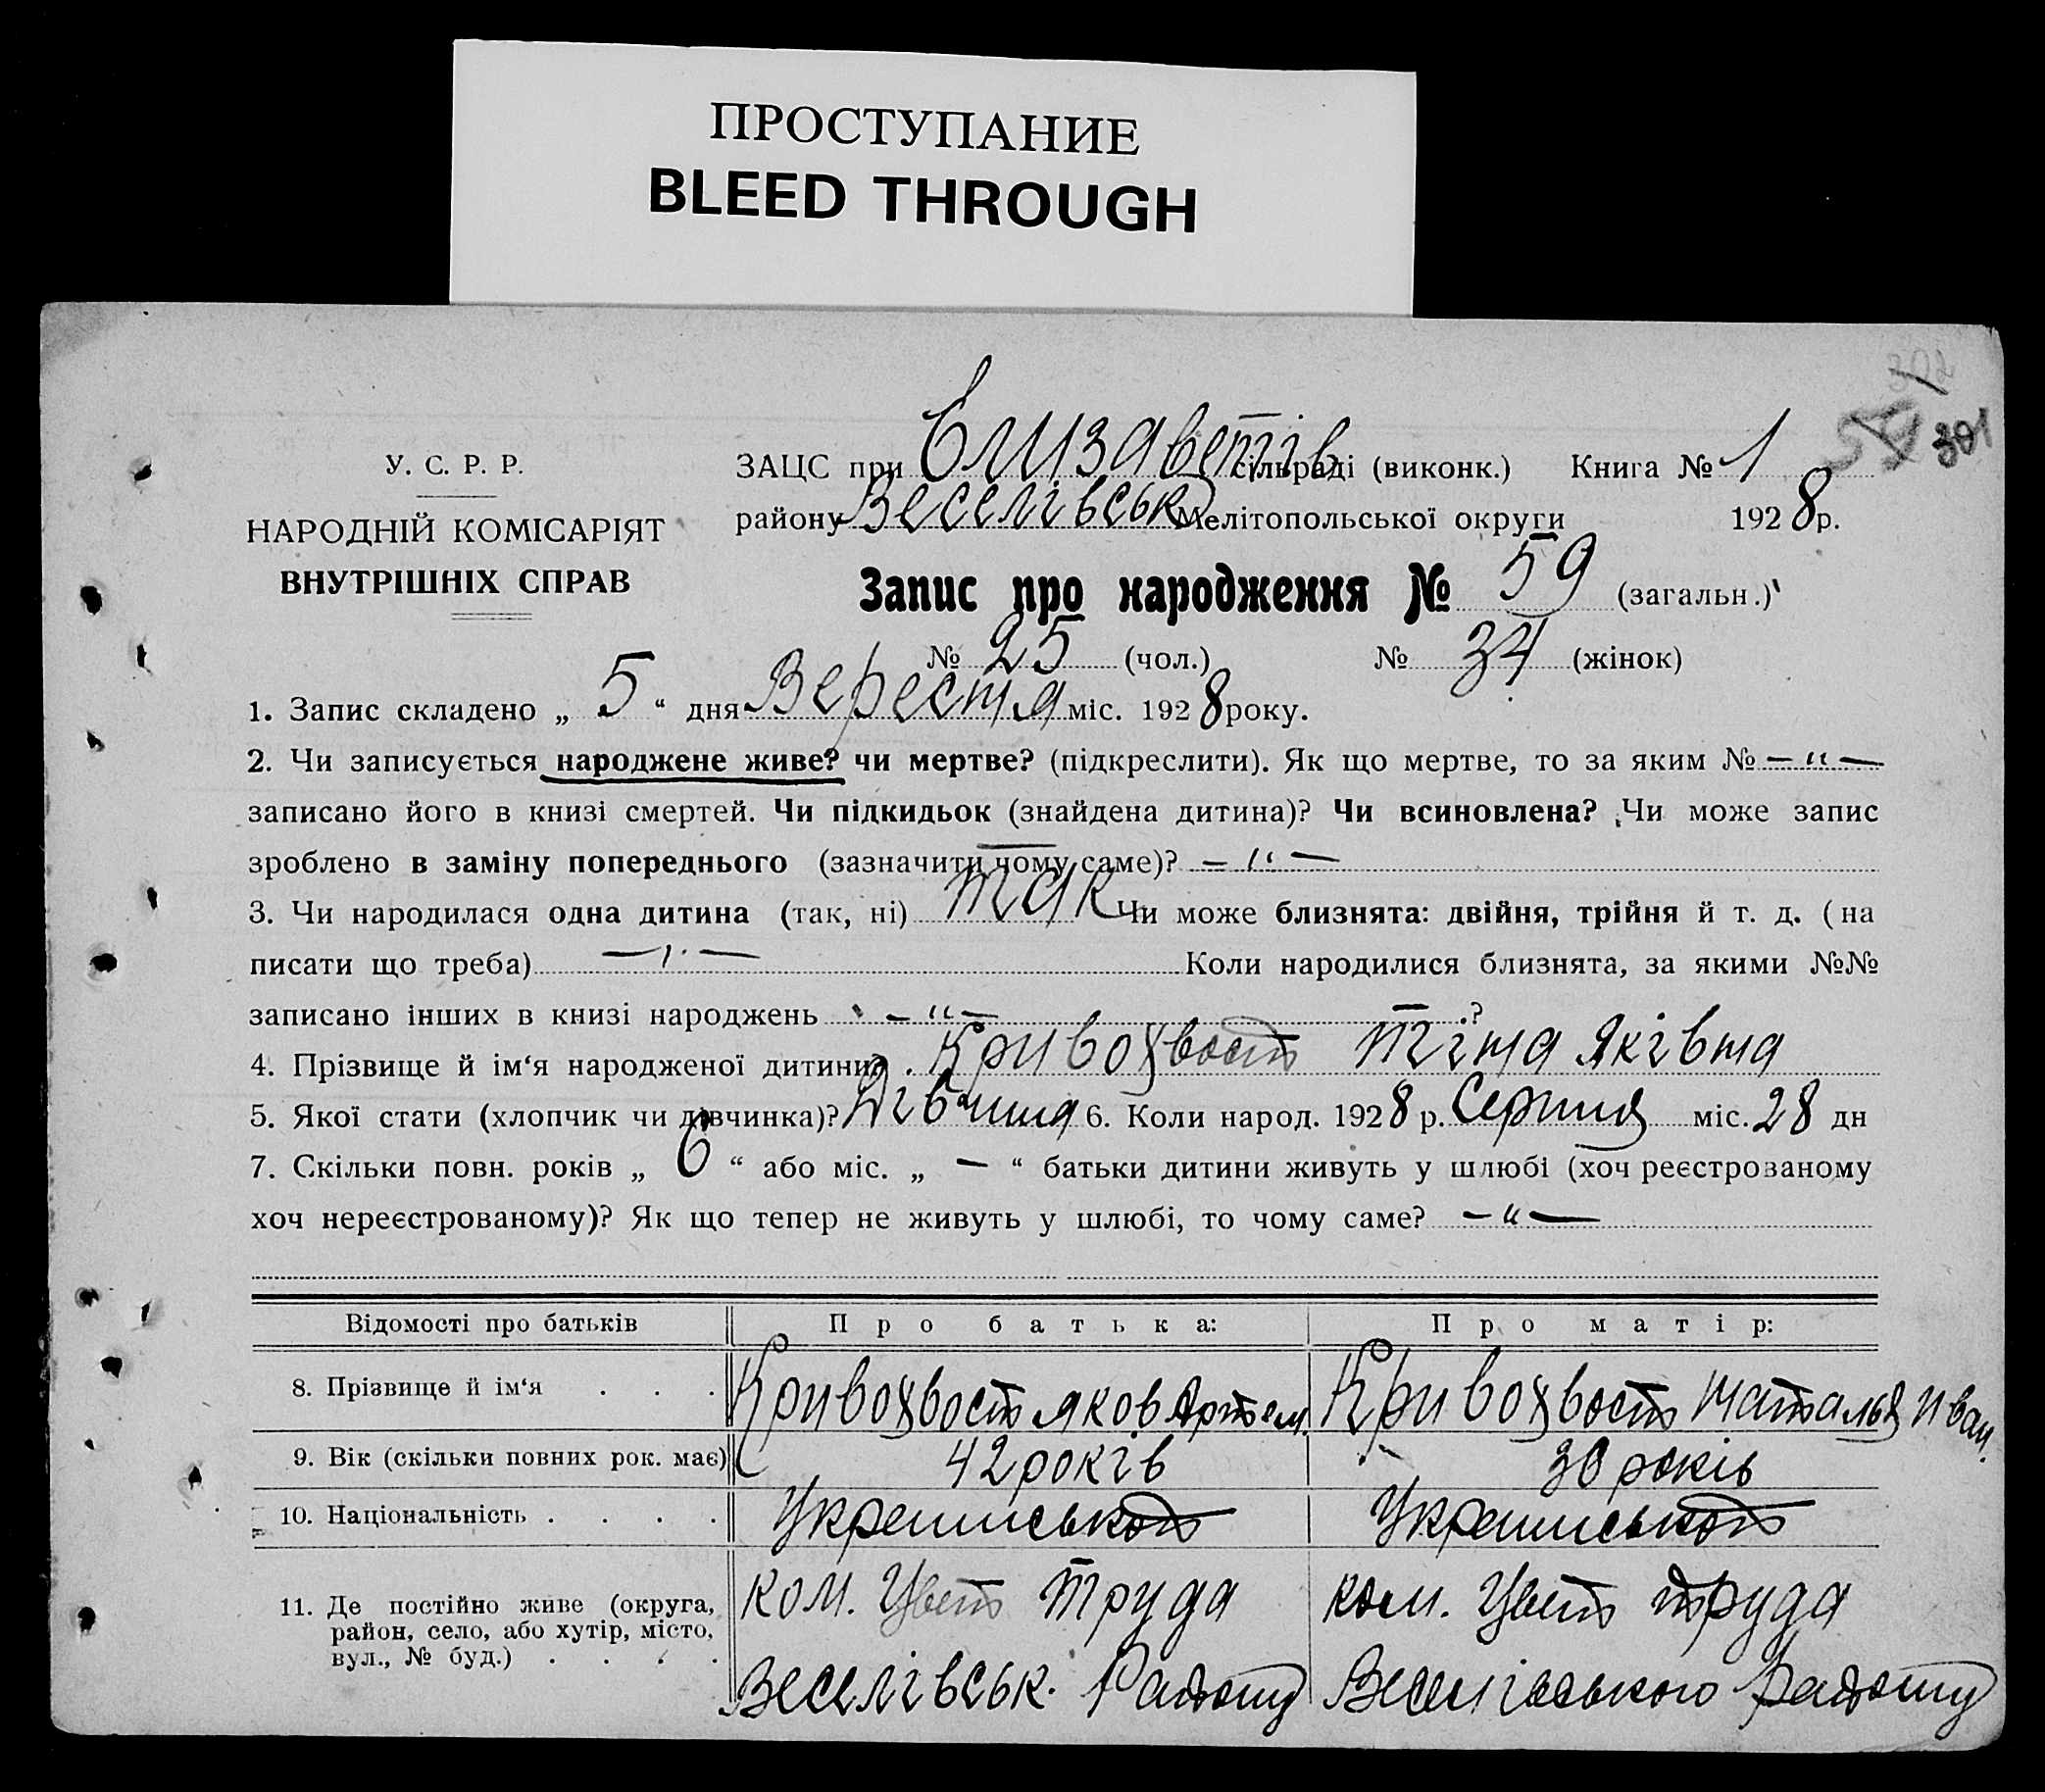 ПРОСТУПАНИЕ
BLEED THROUGH
301
У. С. Р. Р.
НАРОДНІЙ КОМІСАРІЯТ
ВНУТРІШНІХ СПРАВ
ЗАЦС при Елизаветів сільраді (виконк.) Книга № 1
району Веселівськ Мелітопольської округи 1928р.
Запис про народження № 59 (загальн.)
№ 25 (чол.) № 34 (жінок)
1. Запис складено „ 5 “ дня Верестя міс. 1928 року.
2. Чи записується народжене живе? чи мертве? (підкреслити). Як що мертве, то за яким № — „ —
записано його в книзі смертей. Чи підкидьок (знайдена дитина)? Чи всиновлена? Чи може запис
зроблено в заміну попереднього (зазначити чому саме)? — „ —
3. Чи народилася одна дитина (так, ні) так Чи може близнята: двійня, трійня й т. д. (на
писати що треба) — „ — Коли народилися близнята, за якими №№
записано інших в книзі народжень — „ — ?
4. Прізвище й ім‘я народженої дитини Кривохвост Яківна
5. Якої стати (хлопчик чи дівчинка)? Дівчина 6. Коли народ. 1928 р. Серпня міс. 28 дн
7. Скільки повн. років „ 6 “ або міс. „ — “ батьки дитини живуть у шлюбі (хоч реєстрованому
хоч нереєстрованому)? Як що тепер не живуть у шлюбі, то чому саме? — „ —
Відомості про батьків Про батька: Про матір:
8. Прізвище й ім‘я . . . Кривохвост Яков Артем. Кривохвост Наталья Иван.
9. Вік (скільки повних рок. має) 42 років 30 років
10. Національність . . . . Украинської Украинської
11. Де постійно живе (округа, район, село, або хутір, місто, вул., № буд.) . . . .
ком. Цвет труда ком. Цвет труда
Веселівськ. Району Веселівського Району